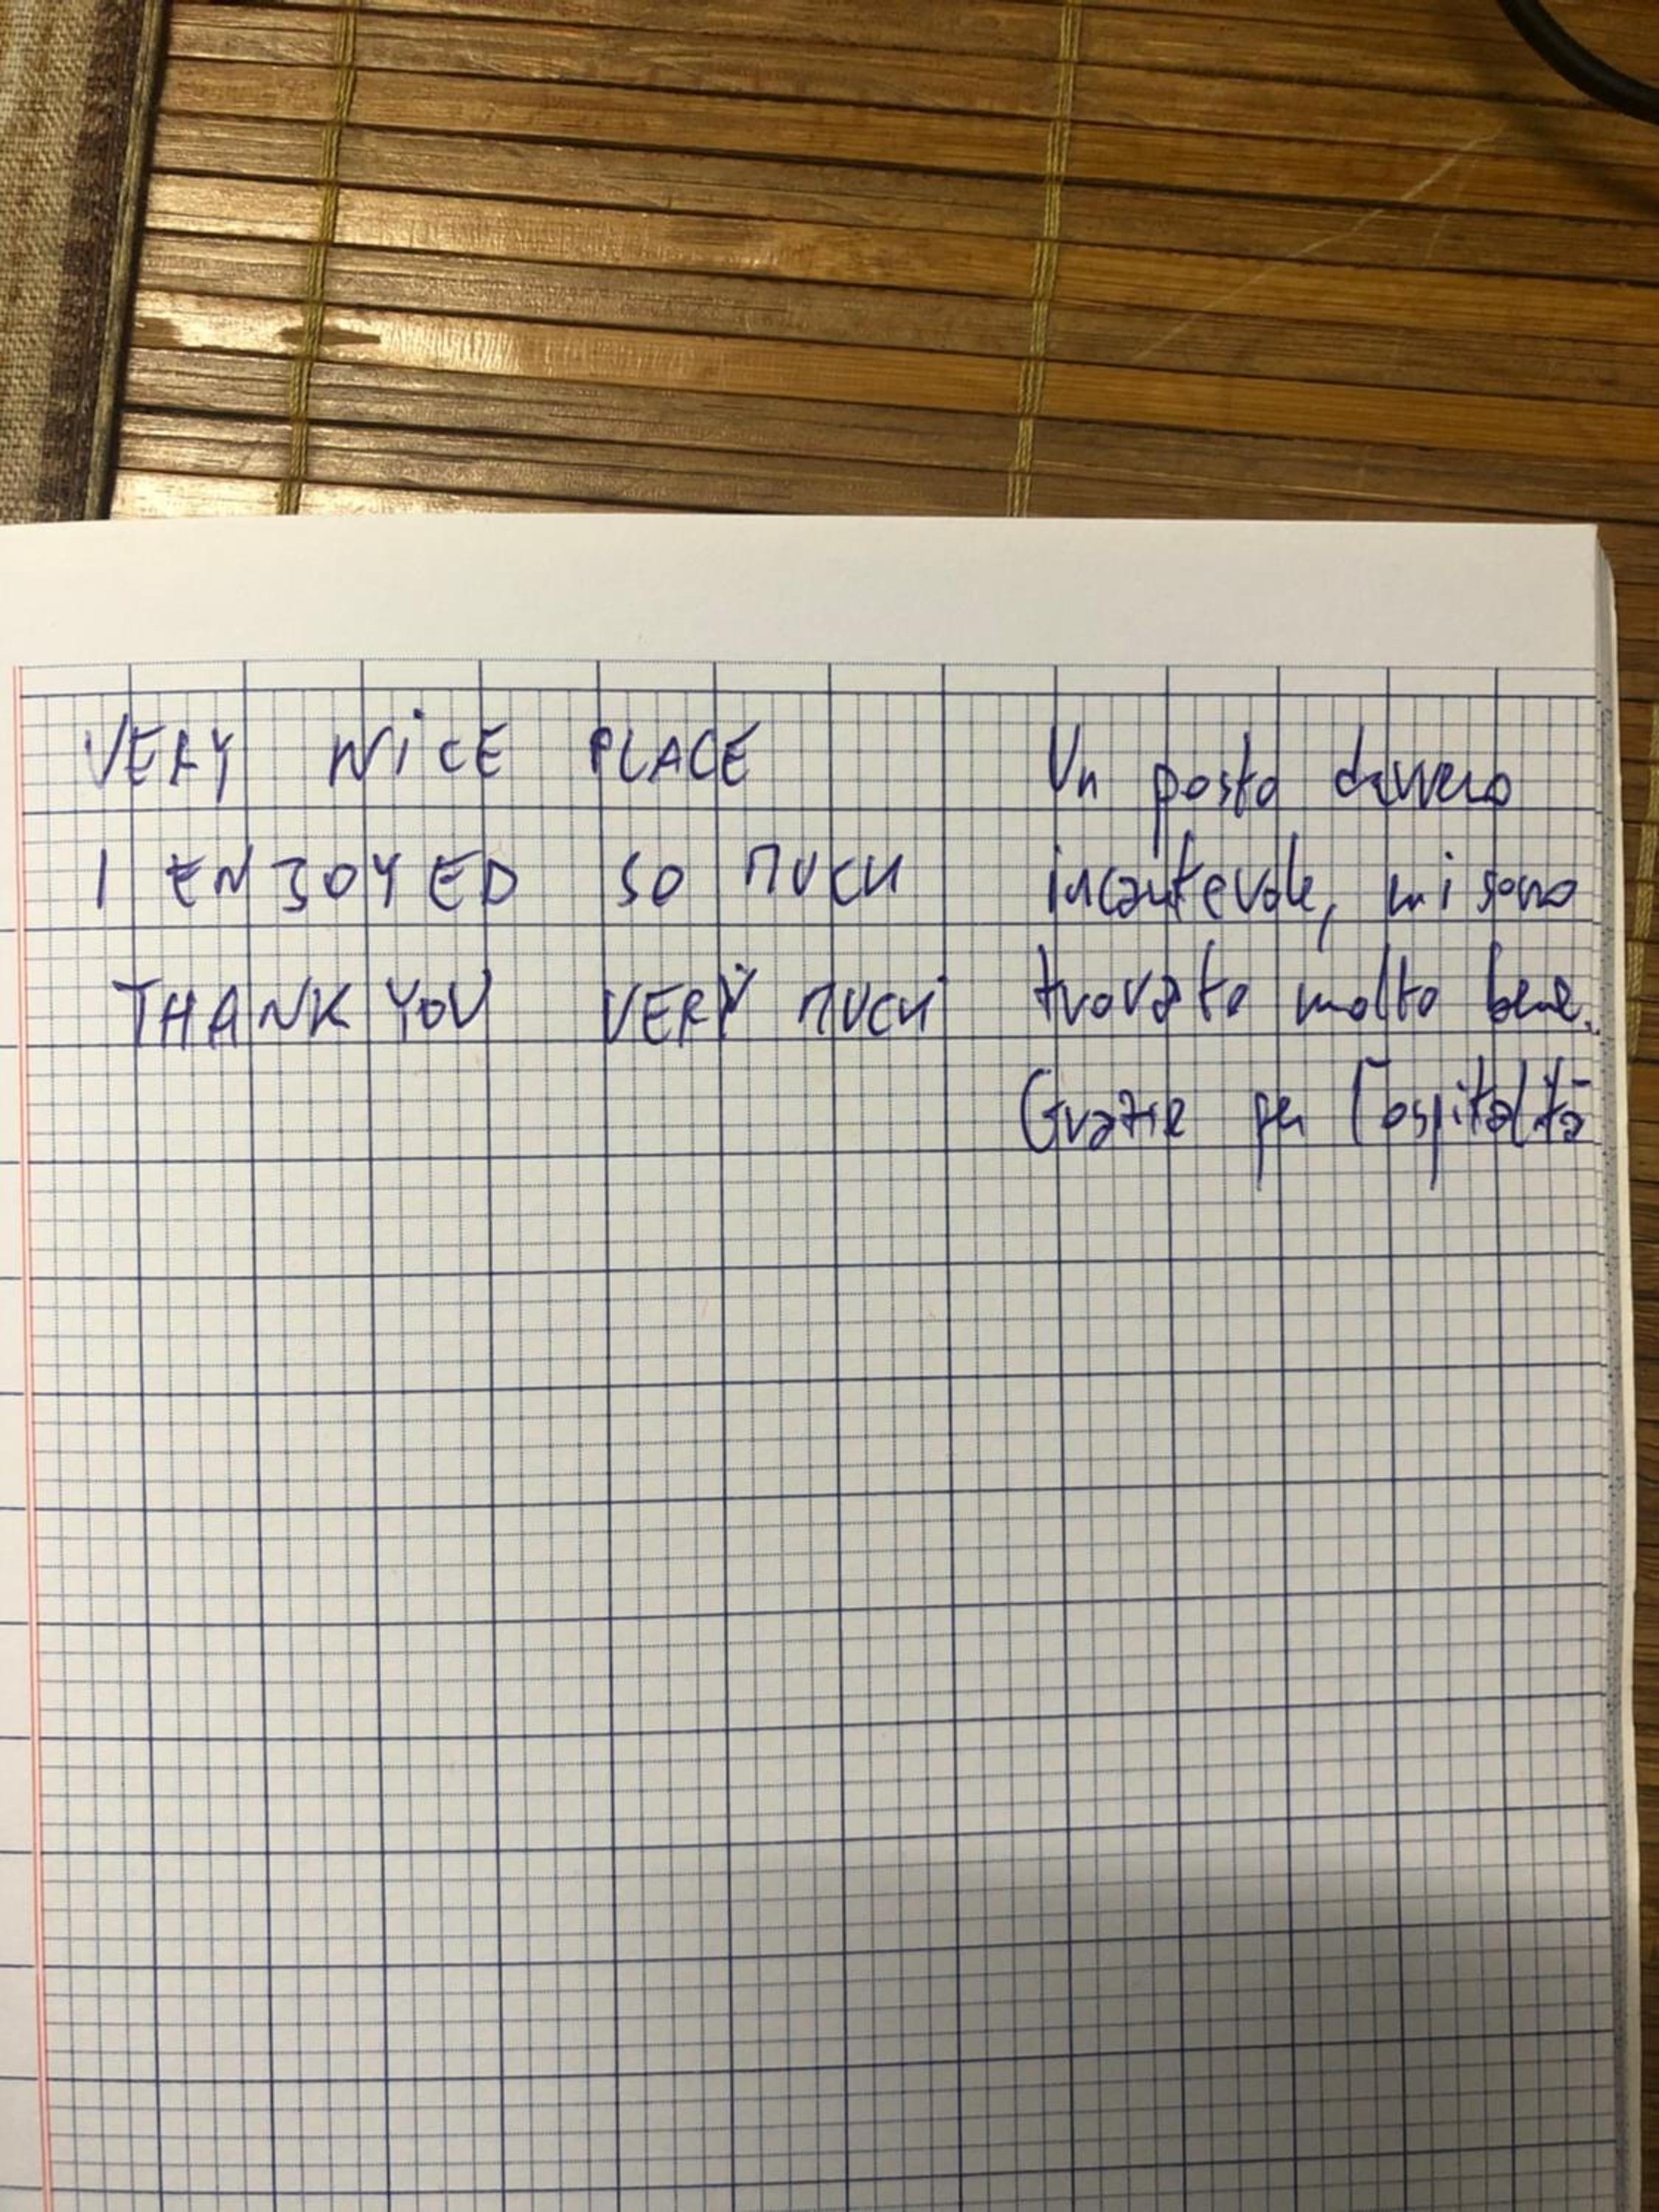 VERY NICE PLACE
I ENJOYED SO MUCH
THANK YOU VERY MUCH
Un posto davvero
incantevole, mi sono
trovato molto bene.
Grazie per l'ospitalità